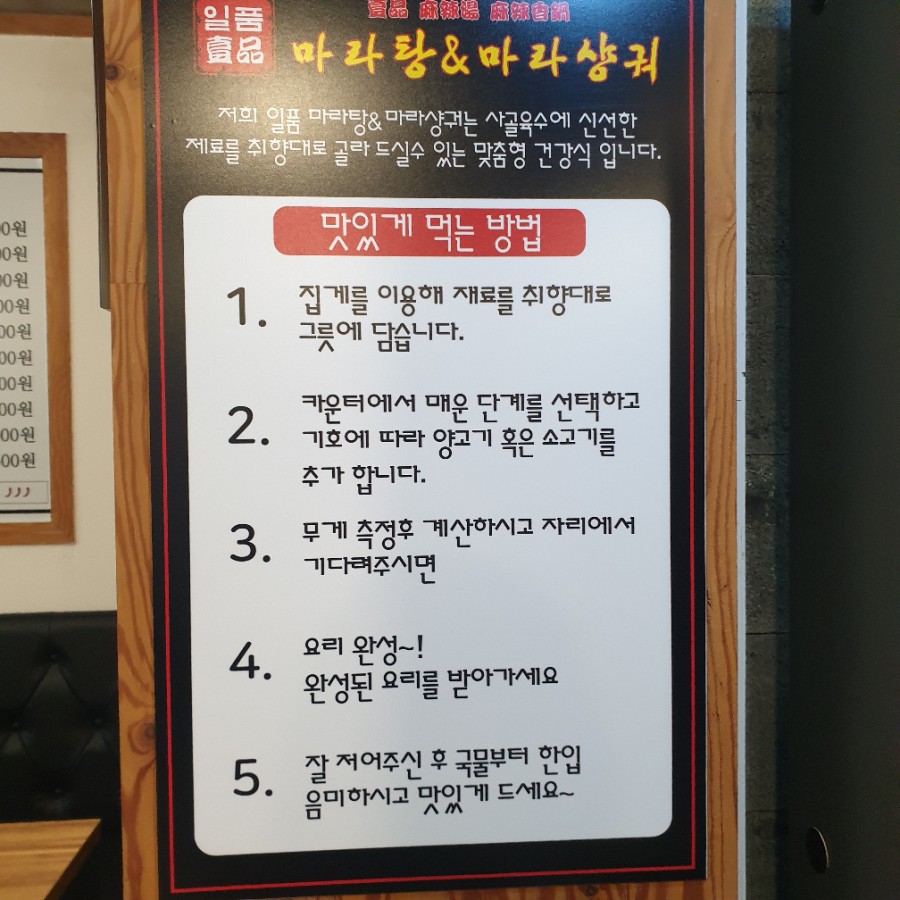 일품
壹品
壹品 麻辣湯 麻辣香鍋
마라탕&마라샹궈
저희 일품 마라탕&마라샹궈는 사골육수에 신선한
제료를 취향대로 골라 드실수 있는 맞춤형 건강식 입니다.
맛있게 먹는 방법
1. 집게를 이용해 재료를 취향대로
그릇에 담습니다.
2. 카운터에서 매운 단계를 선택하고
기호에 따라 양고기 혹은 소고기를
추가 합니다.
3. 무게 측정후 계산하시고 자리에서
기다려주시면
4. 요리 완성~!
완성된 요리를 받아가세요
5. 잘 저어주신 후 국물부터 한입
음미하시고 맛있게 드세요~
00원
00원
00원
00원
00원
00원
00원
00원
00원
500원